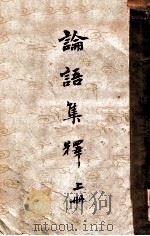 論語集釋
上冊